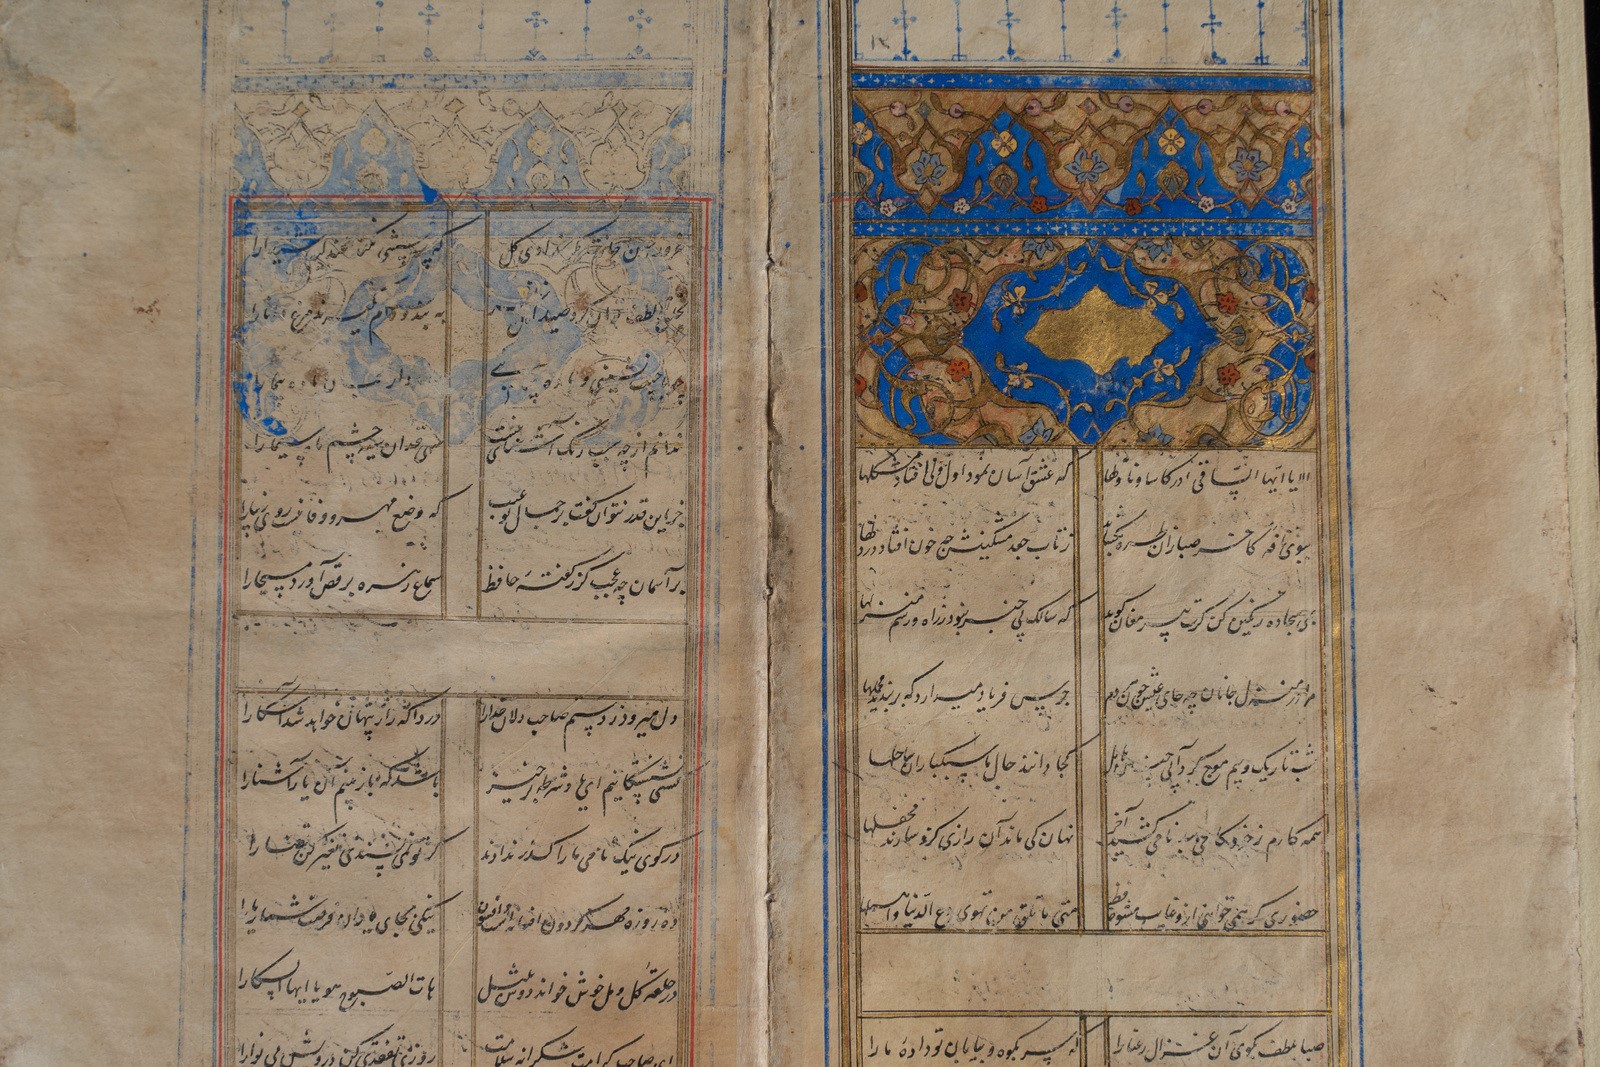 الا یا ایها الساقی ادر کاسا و ناولها که عشق آسان نمود اول ولی افتاد مشکلها
ببوی نافه کاخر صبا زان طره بگشاید ز تاب جعد مشکینش چه خون افتاد در دلها
بمی سجاده رنگین کن گرت پیر مغان گوید که سالک بی خبر نبود ز راه و رسم منزلها
مرا در منزل جانان چه جای عیش چون هر دم جرس فریاد میدارد که بربندید محملها
شب تاریک و بیم موج و گردابی چنین هایل کجا دانند حال ما سبکباران ساحلها
همه کارم ز خود کامی به بدنامی کشید آخر نهان کی ماند آن رازی کزو سازند محفلها
حضوری گر همی خواهی ازو غایب مشو حافظ متی ما تلق من تهوی دع الدنیا و اهملها
صبا بلطف بگوی آن غزال رعنا را که سر بکوه و بیابان تو داده ما را
غرور حسن گل که پرسشی کنی عندلیب شیدا را
بلطف صید اهل نظر به بند و دام نگیرند مرغ دانا را
چو با حبیب نشینی و باده پیمایی
ندانم از چه سبب رنگ آشنایی نیست سهی قدان سیه چشم ماه سیما را
جز این قدر نتوان گفت بر جمال تو عیب که وضع مهر و وفا نیست روی زیبا را
بر آسمان چه عجب گر ز گفته حافظ سماع زهره برقص آورد مسیحا را
دل میرود ز دستم صاحب دلان خدا را دردا که راز پنهان خواهد شد آشکارا
کشتی شکستگانیم ای باد شرطه برخیز باشد که باز بینیم آن یار آشنا را
در کوی نیک نامی ما را گذر ندادند گر تو نمی پسندی تغییر کن قضا را
ده روزه مهر گردون افسانه است و افسون نیکی بجای یاران فرصت شمار یارا
در حلقه گل و مل خوش خواند دوش بلبل هات الصبوح هبوا یا ایها السکارا
ای صاحب کرامت شکرانه سلامت روزی تفقدی کن درویش بی نوا را